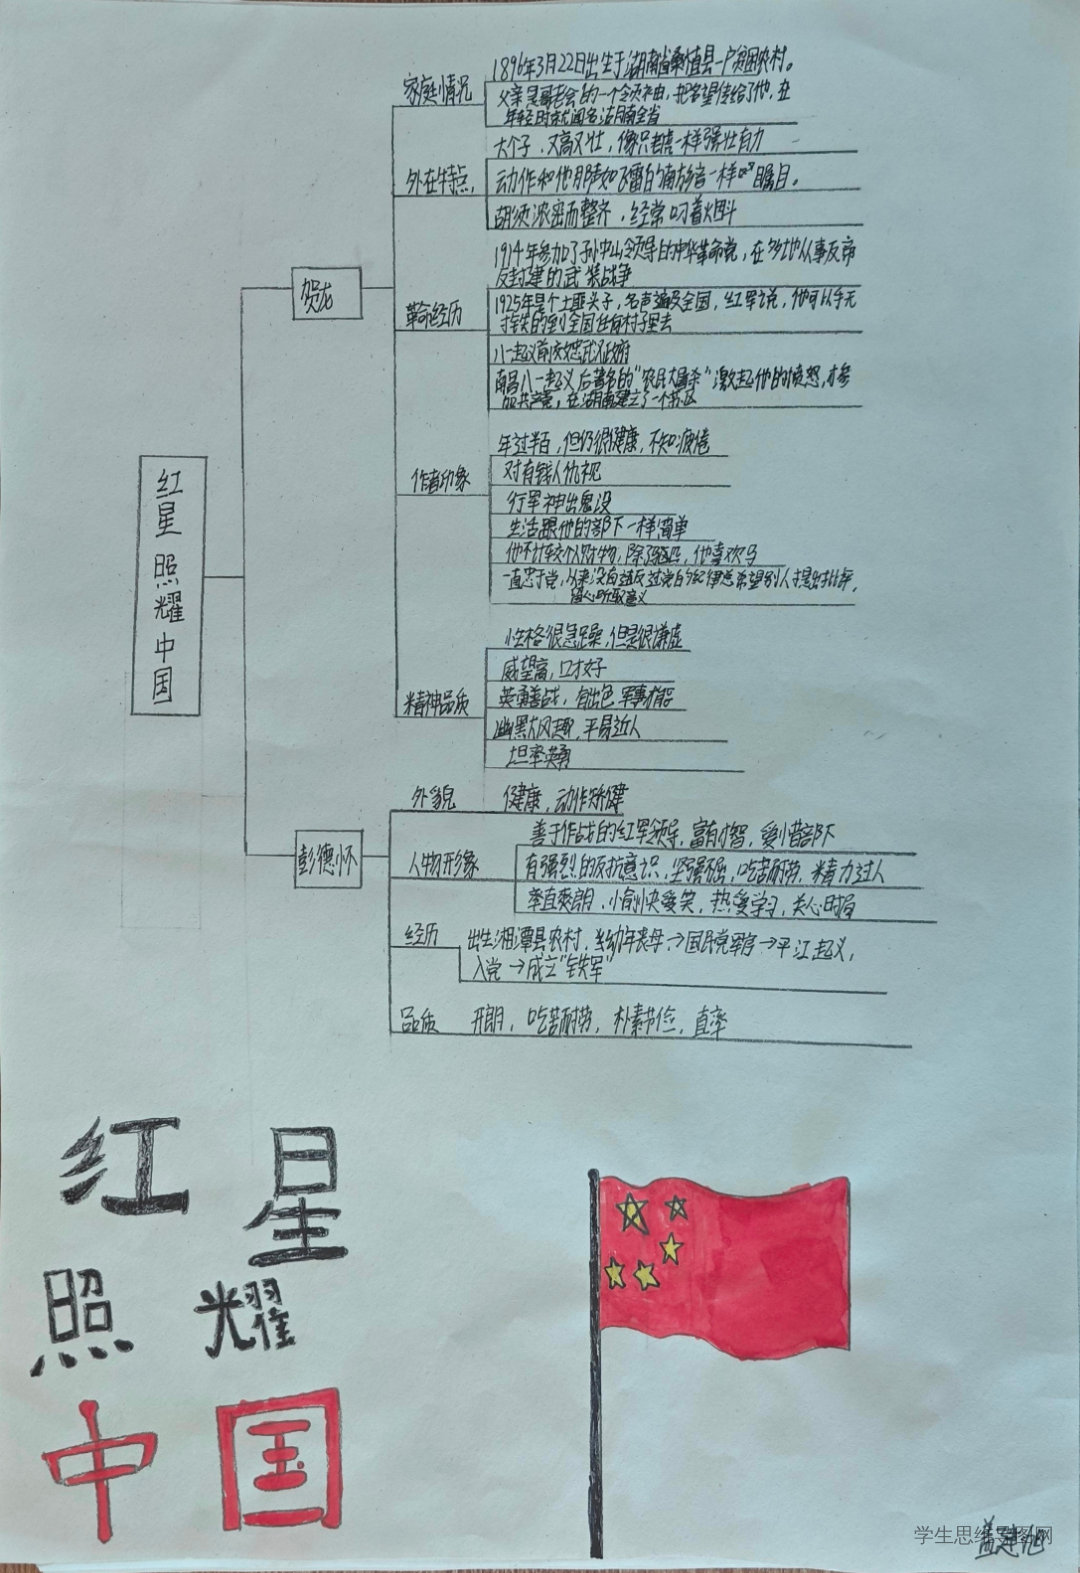 红星照耀中国
贺龙
家庭情况
1896年3月22日出生于湖南省桑植县一户贫困农村。
父亲是哥老会的一个领袖,把名望传给了他,在
年轻时就闻名湖南全省
外在特点,
大个子,又高又壮,像只老虎一样强壮有力
动作和他那声如
一样
瞩目。
胡须浓密而整齐,经常叼着烟斗
革命经历
1914年参加了孙中山领导的中华革命党,在乡地从事反帝
反封建的武装战争
1925年是个土匪头子,名声遍及全国,红军说,他可以手无
寸铁的到全国任何村子里去
八一起义前
南昌八一起义后著名的“农民大屠杀”激起他的愤怒,才参
加共产党,在湖南建立了一个苏区
作者印象
年过半百,但仍很健康,不知疲倦
对有钱人仇视
行军神出鬼没
生活跟他的部下一样简单
他不计较个人财物,除了马匹,他喜欢马
一直忠于党,从来没有违反过党的纪律总希望别人提出批评,
留心听取意义
精神品质
性格很急躁,但是很谦虚
威望高,口才好
英勇善战,有出色军事才能
幽默风趣,平易近人
坦率英勇
彭德怀
外貌
健康,动作矫健
人物形象
善于作战的红军领导,富有才智,爱惜部下
有强烈的反抗意识,坚强不屈,吃苦耐劳,精力过人
率直爽朗,愉快爱笑,热爱学习,关心时局
经历
出生湘潭县农村,幼年丧母→国民党军官→平江起义,
入党→成立“铁军”
品质
开朗,吃苦耐劳,朴素节俭,直率
红星
照耀
中国
学生思维导图网